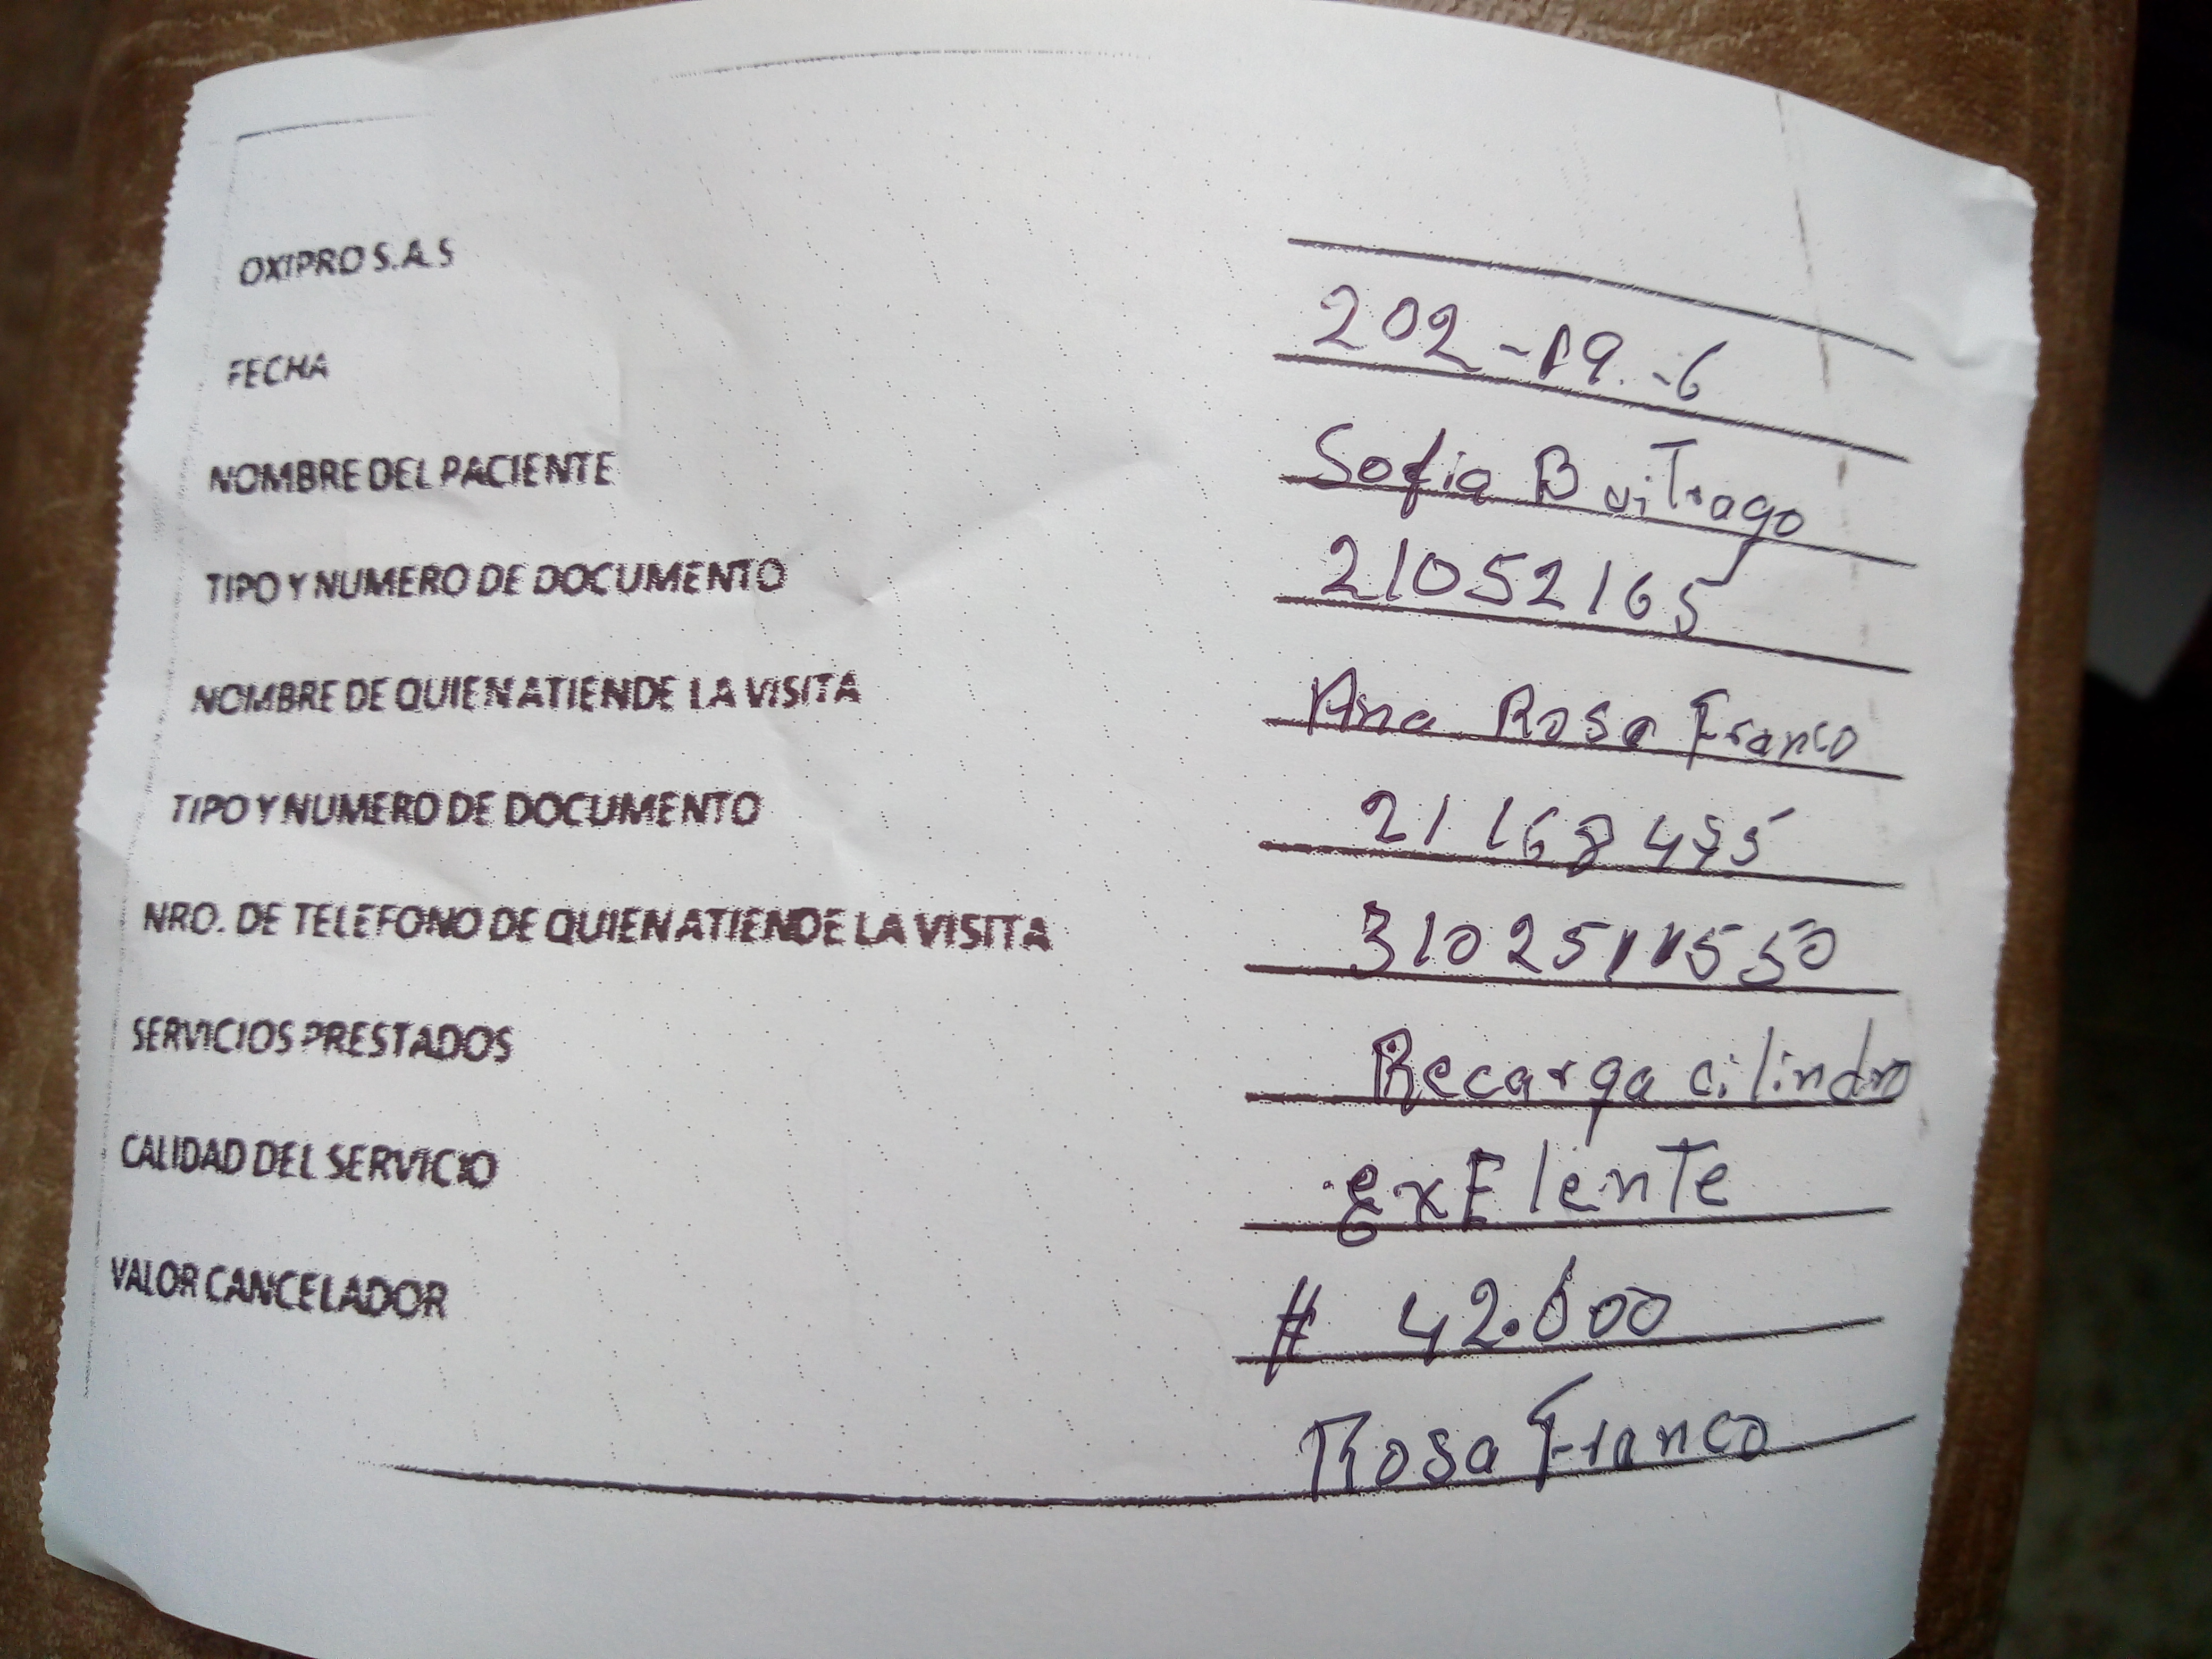 OXIPRO S.A.S
FECHA 202-19.-6
NOMBRE DEL PACIENTE Sofia BuiTrago
TIPO Y NUMERO DE DOCUMENTO 21052165
NOMBRE DE QUIEN ATIENDE LA VISITA Ana Rosa Franco
TIPO Y NUMERO DE DOCUMENTO
NRO. DE TELEFONO DE QUIEN ATIENDE LA VISITA
SERVICIOS PRESTADOS Recarga cilindro
CALIDAD DEL SERVICIO exElente
VALOR CANCELADOR # 42.600
Rosa Franco